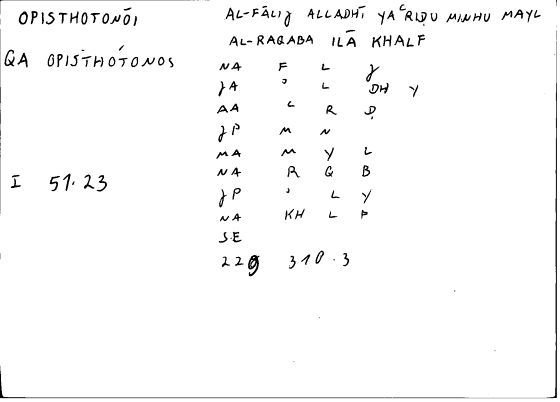 OPISTHOTONŌI
AL-FĀLIJ ALLADHĪ YAʿRIḌU MINHU MAYL
AL-RAQABA ILĀ KHALF
QA OPISTHÓTONOS
NA F L J
JA ʾ L DH Y
AA ʿ R Ḍ
JP M N
MA M Y L
NA R Q B
JP ʾ L Y
NA KH L F
SE
I 51.23
229 310.3